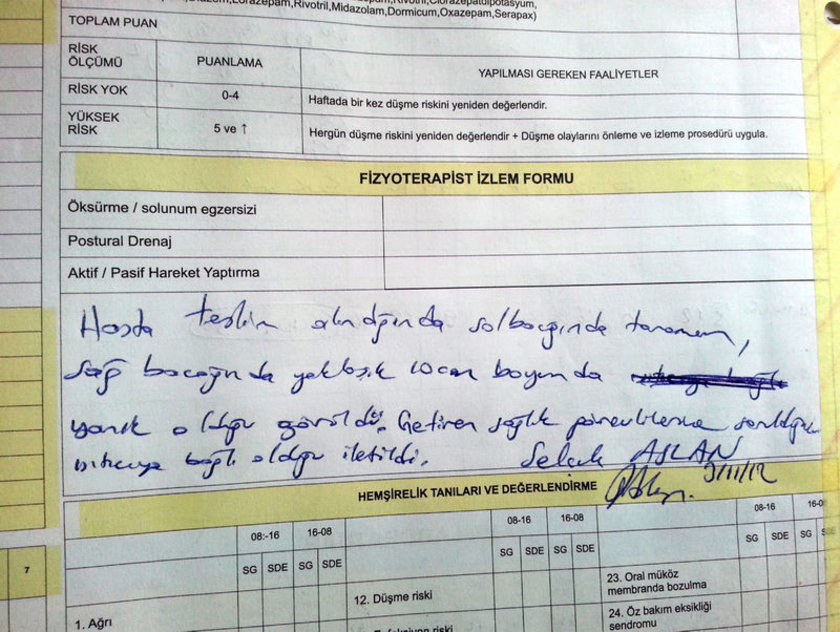 Lorazepam,Rivotril,Midazolam,Dormicum,Oxazepam,Serapax)
TOPLAM PUAN
RİSK ÖLÇÜMÜ PUANLAMA YAPILMASI GEREKEN FAALİYETLER
RİSK YOK 0-4 Haftada bir kez düşme riskini yeniden değerlendir.
YÜKSEK RİSK 5 ve ↑ Hergün düşme riskini yeniden değerlendir + Düşme olaylarını önleme ve izleme prosedürü uygula.
FİZYOTERAPİST İZLEM FORMU
Öksürme / solunum egzersizi
Postural Drenaj
Aktif / Pasif Hareket Yaptırma
Hasta teslim alındığında sol bacağında tamamen,
sağ bacağında yaklaşık 10 cm boyunda
yanık olduğu görüldü. Getiren sağlık görevlilerine sorulduğunda
ısıtıcıya bağlı olduğu iletildi. Selçuk ASLAN
HEMŞİRELİK TANILARI VE DEĞERLENDİRME
08:-16 16-08 08-16 16-08 08-16
SG SDE SG SDE SG SDE SG SDE SG SDE SG
7
1. Ağrı
12. Düşme riski
23. Oral müköz
membranda bozulma
24. Öz bakım eksikliği
sendromu